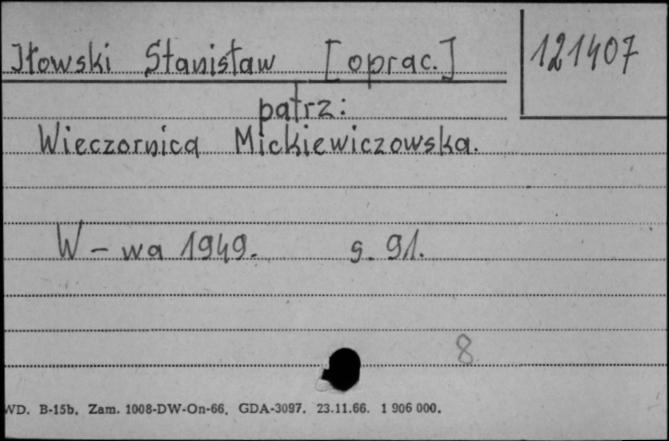 Iłowski Stanisław [oprac.]
121407
patrz:
Wieczornica Mickiewiczowska.
W-wa 1949. s. 91.
8
WD. B-15b. Zam. 1008-DW-On-66. GDA-3097. 23.11.66. 1 906 000.